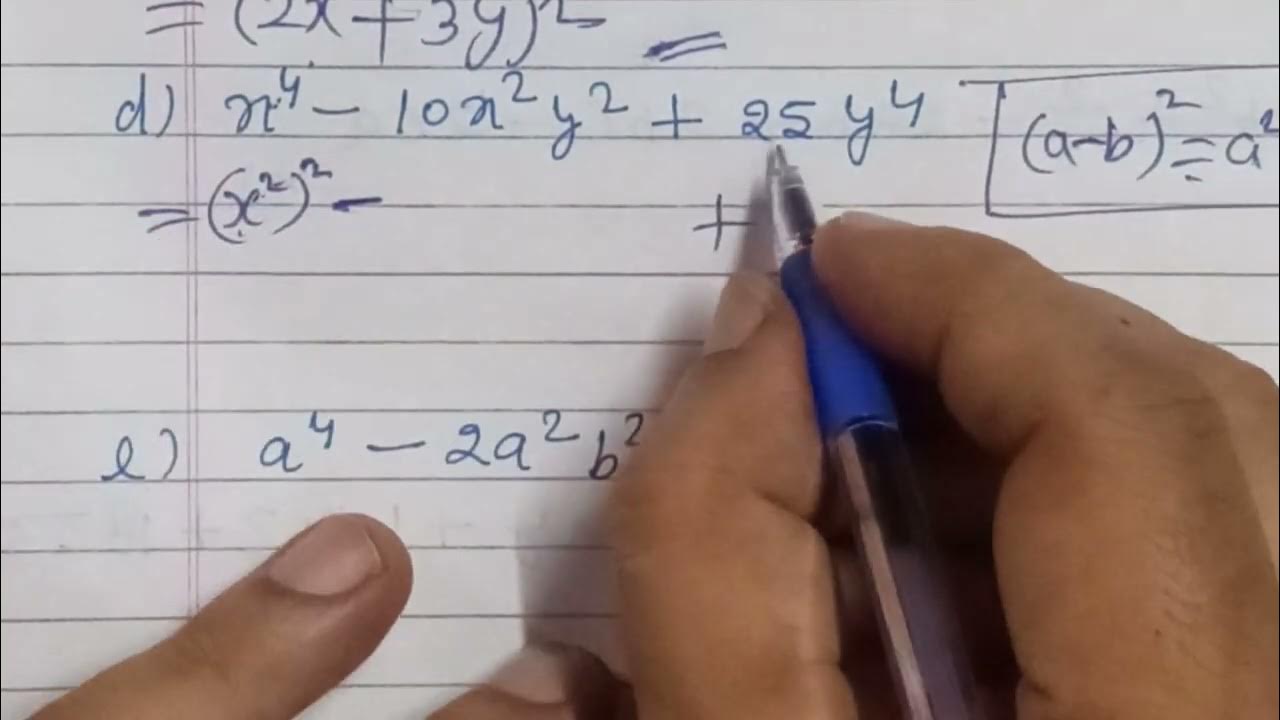 = (2x+3y)²
d) x⁴ - 10x²y² + 25y⁴
(a-b)² = a²
= (x²)² - +
e) a⁴ - 2a²b²